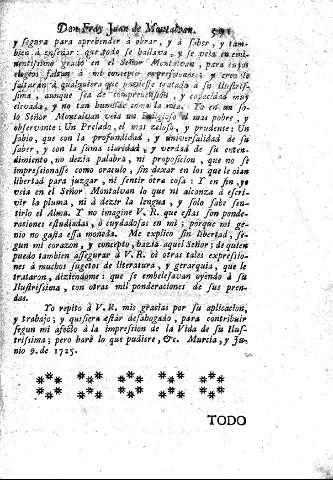 Don Fray Juan de Montalvan. 591
y segura para aprehender à obrar, y à saber, y tam-
bien à enseñar: que todo se hallava, y se veìa en emi-
nentissimo grado en el Señor Montalvan, para cuyos
elogios faltan à mi concepto expressiones; y creo le
faltaràn à qualquiera que huviesse tratado à su Ilustris-
sima, aunque sea de comprehension, y capacidad muy
elevada, y no tan humilde como la mia. Yo en un so-
lo Señor Montalvan veìa un Religioso el mas pobre, y
observante: Un Prelado, el mas zeloso, y prudente: Un
sabio, que con la profundidad, y universalidad de su
saber, y con la suma claridad, y verdad de su enten-
dimiento, no dezia palabra, ni proposicion, que no se
impressionasse como oraculo, sin dexar en los que le oìan
libertad para juzgar, ni sentir otra cosa: Y en fin, yo
veìa en el Señor Montalvan lo que ni alcanza à escri-
vir la pluma, ni à dezir la lengua, y solo sabe sen-
tirlo el Alma. Y no imagine V. R. que estas son ponde-
raciones estudiadas, ò cuydadosas en mi; porque mi ge-
nio no gasta essa moneda. Me explico sin libertad, se-
gun mi corazon, y concepto, hazia aquel Señor: de quien
puedo tambien assegurar à V. R. oì otras tales expressio-
nes à muchos sugetos de literatura, y gerarquia, que le
trataron, diziendome: que se embelesavan oyendo à su
Ilustrissima, con otras mil ponderaciones de sus pren-
das.
Yo repito à V. R. mis gracias por su aplicacion,
y trabajo; y quisiera estàr desahogado, para contribuir
segun mi afecto à la impression de la Vida de su Ilus-
trissima; pero harè lo que pudiere, &c. Murcia, y Ju-
nio 9. de 1725.
TODO